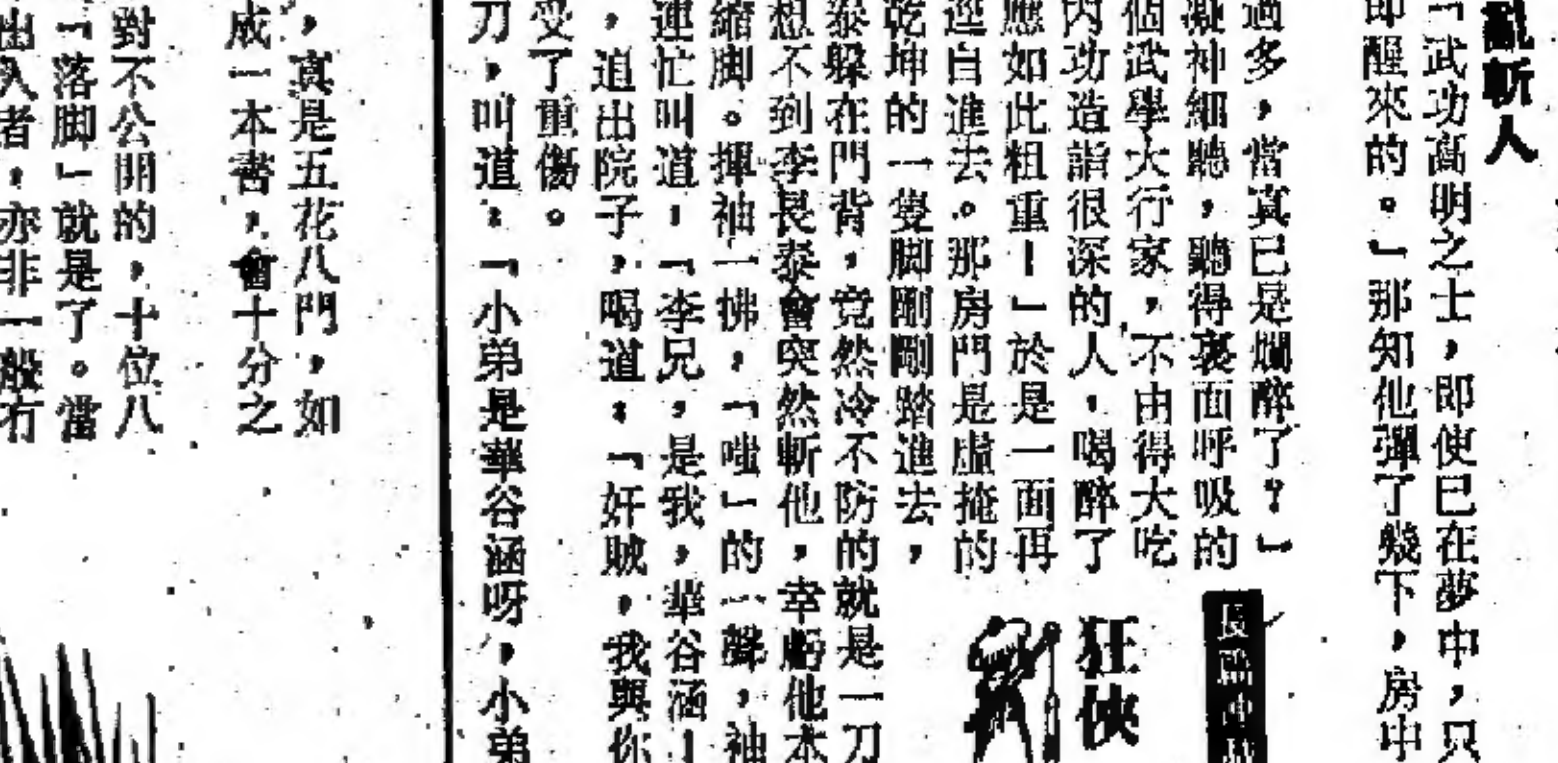 亂斬人
「武功高明之士，即使已在夢中，只
即醒來的。」那知他彈了幾下，房中
過多，當真已是爛醉了？」
凝神細聽，聽得裏面呼吸的
個武學大行家，不由得大吃
內功造詣很深的人，喝醉了
應如此粗重！」於是一面再
逕自進去。那房門是虛掩的
乾坤的一隻脚剛剛踏進去，
泰躲在門背，竟然冷不防的就是一刀
想不到李長泰會突然斬他，幸虧他本
縮脚。揮袖一拂，「嗤」的一聲，袖
連忙叫道，「李兄，是我，華谷涵！
，追出院子，喝道：「奸賊，我與你
受了重傷。
刀，叫道：「小弟是華谷涵呀，小弟
狂俠
，真是五花八門，如
成一本書，會十分之
對不公開的，十位八
「落脚」就是了。當
出入者，亦非一般有